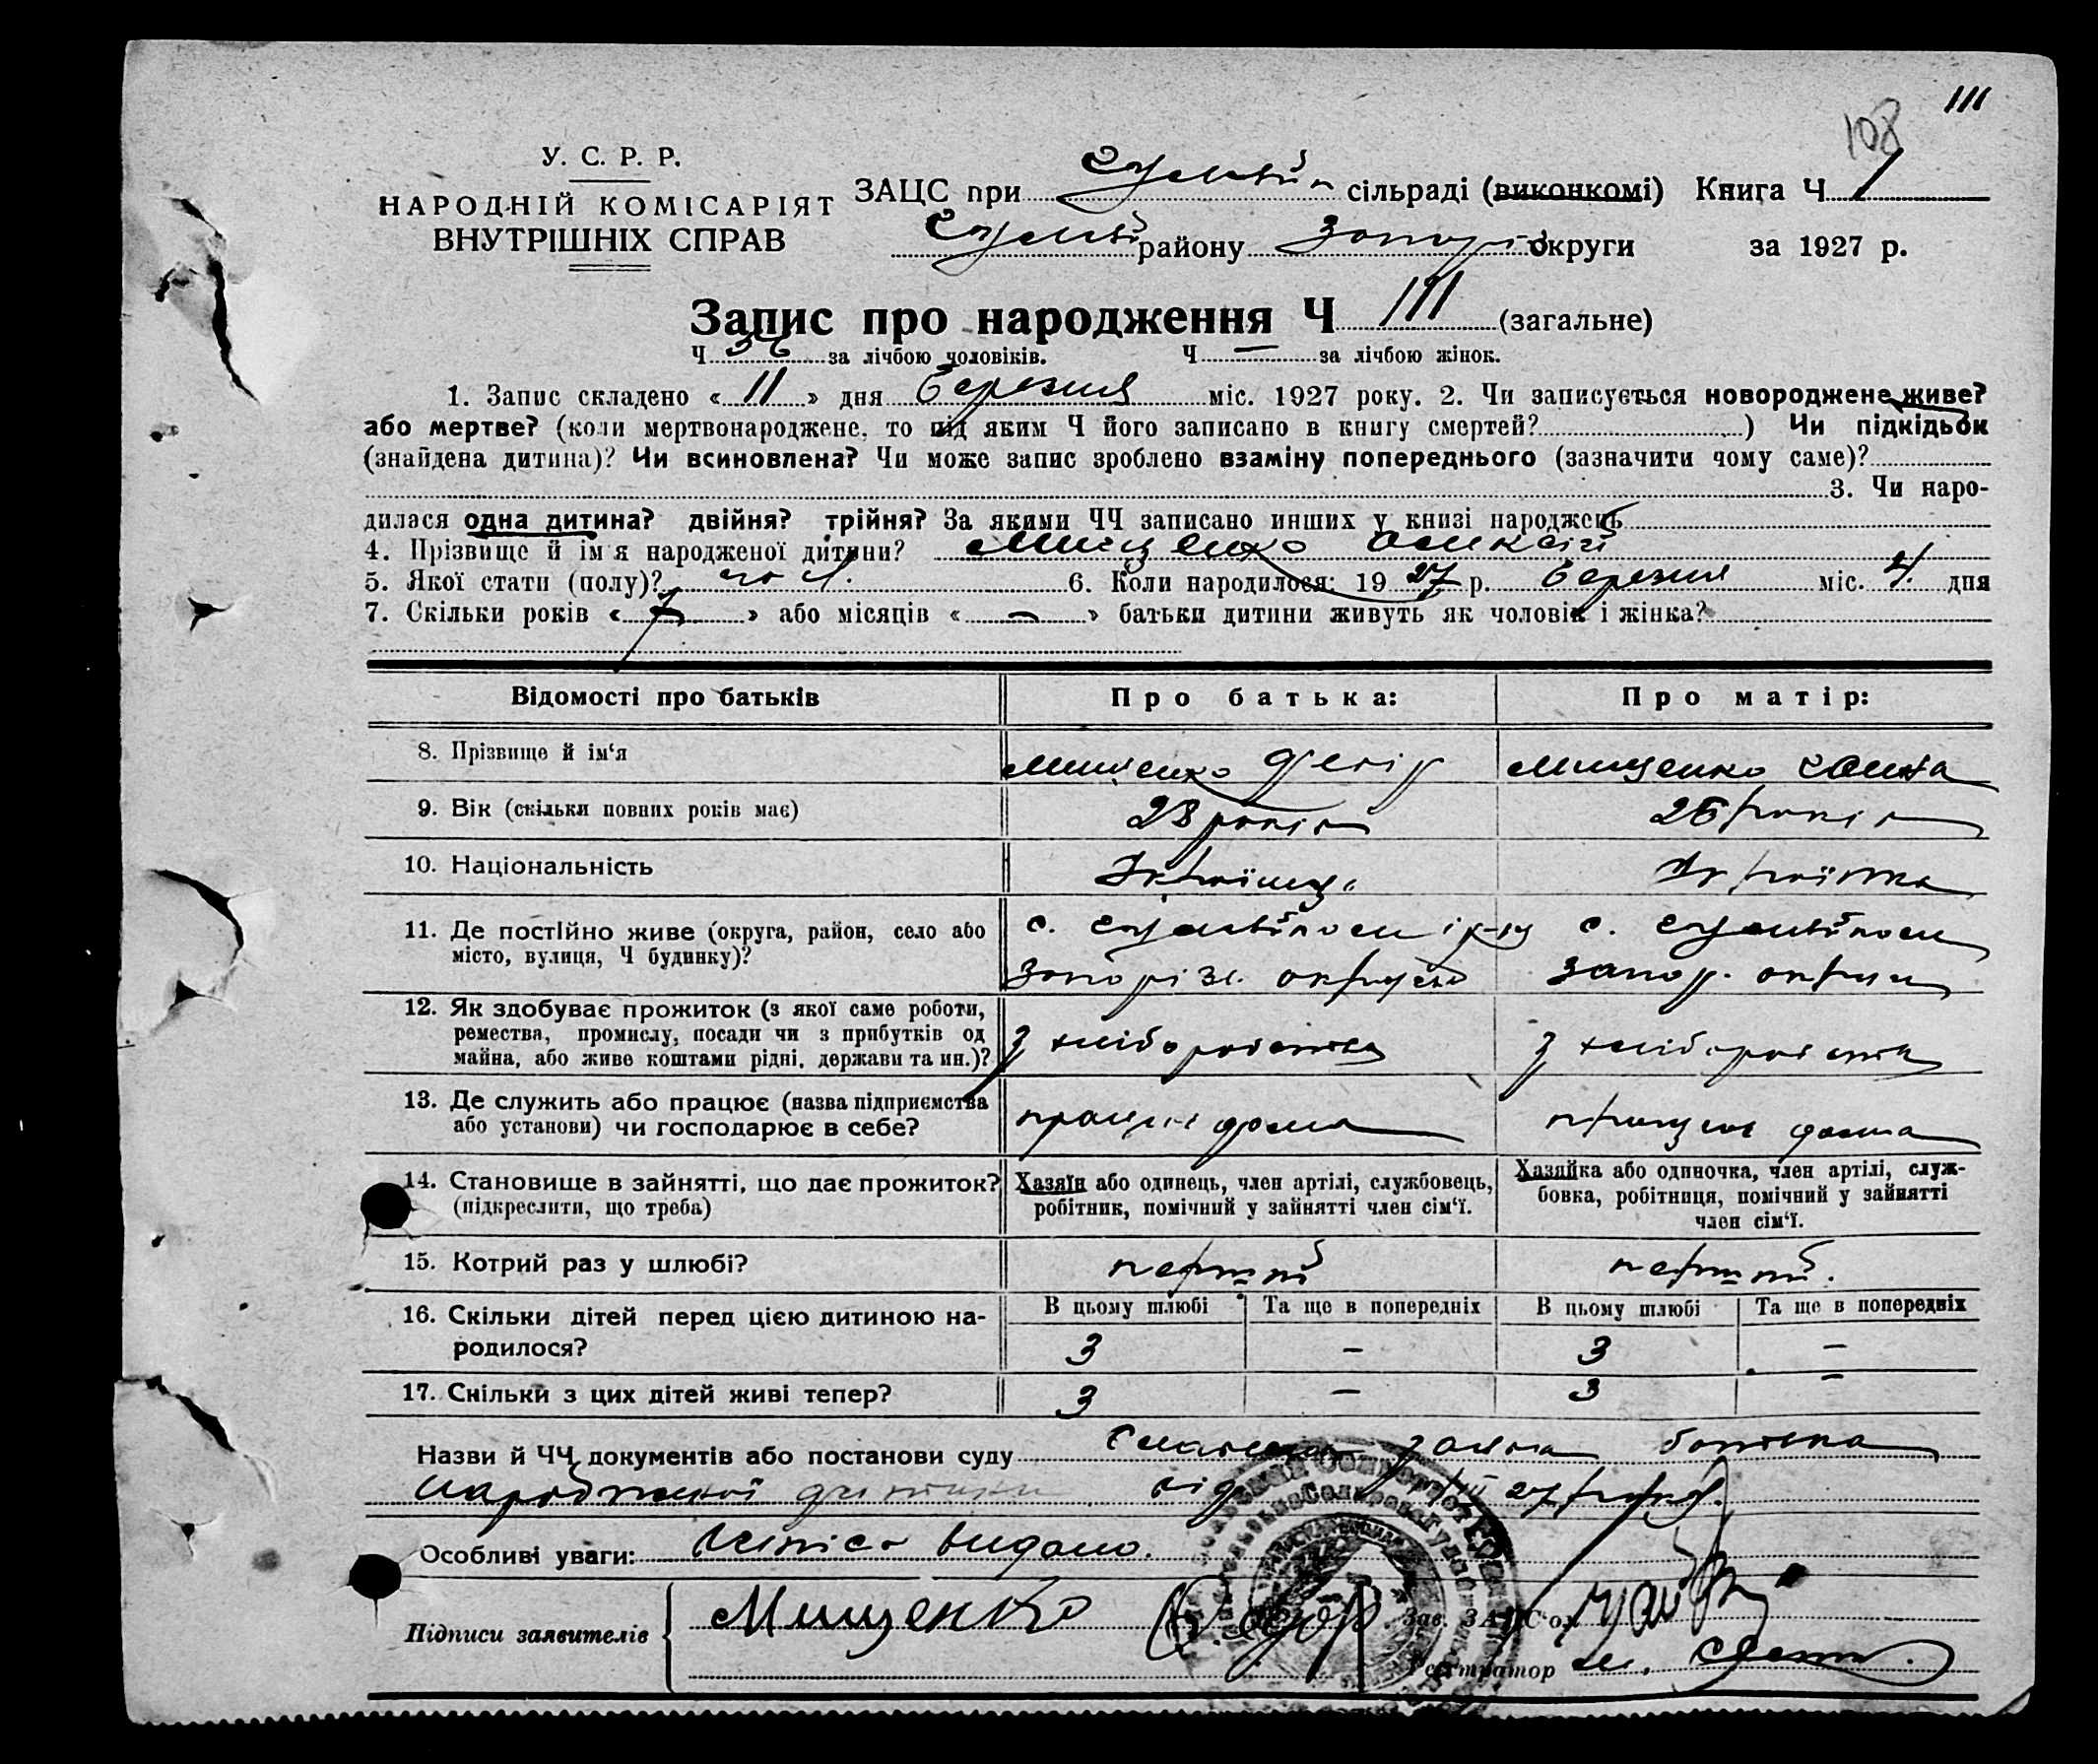 111
108
У. С. Р. Р.
НАРОДНІЙ КОМІСАРІЯТ
ВНУТРІШНІХ СПРАВ
ЗАЦС при сільраді (виконкомі) Книга Ч 1
району округи за 1927 р.
Запис про народження Ч 111 (загальне)
Ч 56 за лічбою чоловіків. Ч — за лічбою жінок.
1. Запис складено « 11 » дня березня міс. 1927 року. 2. Чи записується новороджене живе?
або мертве? (коли мертвонароджене, то під яким Ч його записано в книгу смертей? ) Чи підкідьок
(знайдена дитина)? Чи всиновлена? Чи може запис зроблено взаміну попереднього (зазначити чому саме)?
3. Чи наро-
дилася одна дитина? двійня? трійня? За якими ЧЧ записано инших у книзі народжень
4. Прізвище й ім'я народженої дитини? Мищенко Олексій
5. Якої стати (полу)? чол. 6. Коли народилося: 1927 р. березня міс. 4. дня
7. Скільки років « 7 » або місяців « — » батьки дитини живуть як чоловік і жінка?
Відомості про батьків Про батька: Про матір:
8. Прізвище й ім'я Мищенко Федір Мищенко Ганна
9. Вік (скільки повних років має) 28 років 26 років
10. Національність Українець Українка
11. Де постійно живе (округа, район, село або
місто, вулиця, Ч будинку)?
с. р-ну с.
Запоріз. округи Запор. округи
12. Як здобуває прожиток (з якої саме роботи,
ремества, промислу, посади чи з прибутків од
майна, або живе коштами рідні, держави та ин.)?
з хліборобства з хліборобства
13. Де служить або працює (назва підприємства
або установи) чи господарює в себе?
працює дома працює дома
14. Становище в зайнятті, що дає прожиток?
(підкреслити, що треба)
Хазяїн або одинець, член артілі, службовець,
робітник, помічний у зайнятті член сім'ї.
Хазяйка або одиночка, член артілі, служ-
бовка, робітниця, помічний у зайнятті
член сім'ї.
15. Котрий раз у шлюбі? перший перший.
16. Скільки дітей перед цією дитиною на-
родилося?
В цьому шлюбі Та ще в попередніх В цьому шлюбі Та ще в попередніх
3 — 3 —
17. Скільки з цих дітей живі тепер? 3 — 3 —
Назви й ЧЧ документів або постанови суду заява батька
народженої дитини від 27 року.
Особливі уваги: видано.
Підписи заявителів Мищенко Федір
Зав. ЗАЦС'ом
Реєстратор